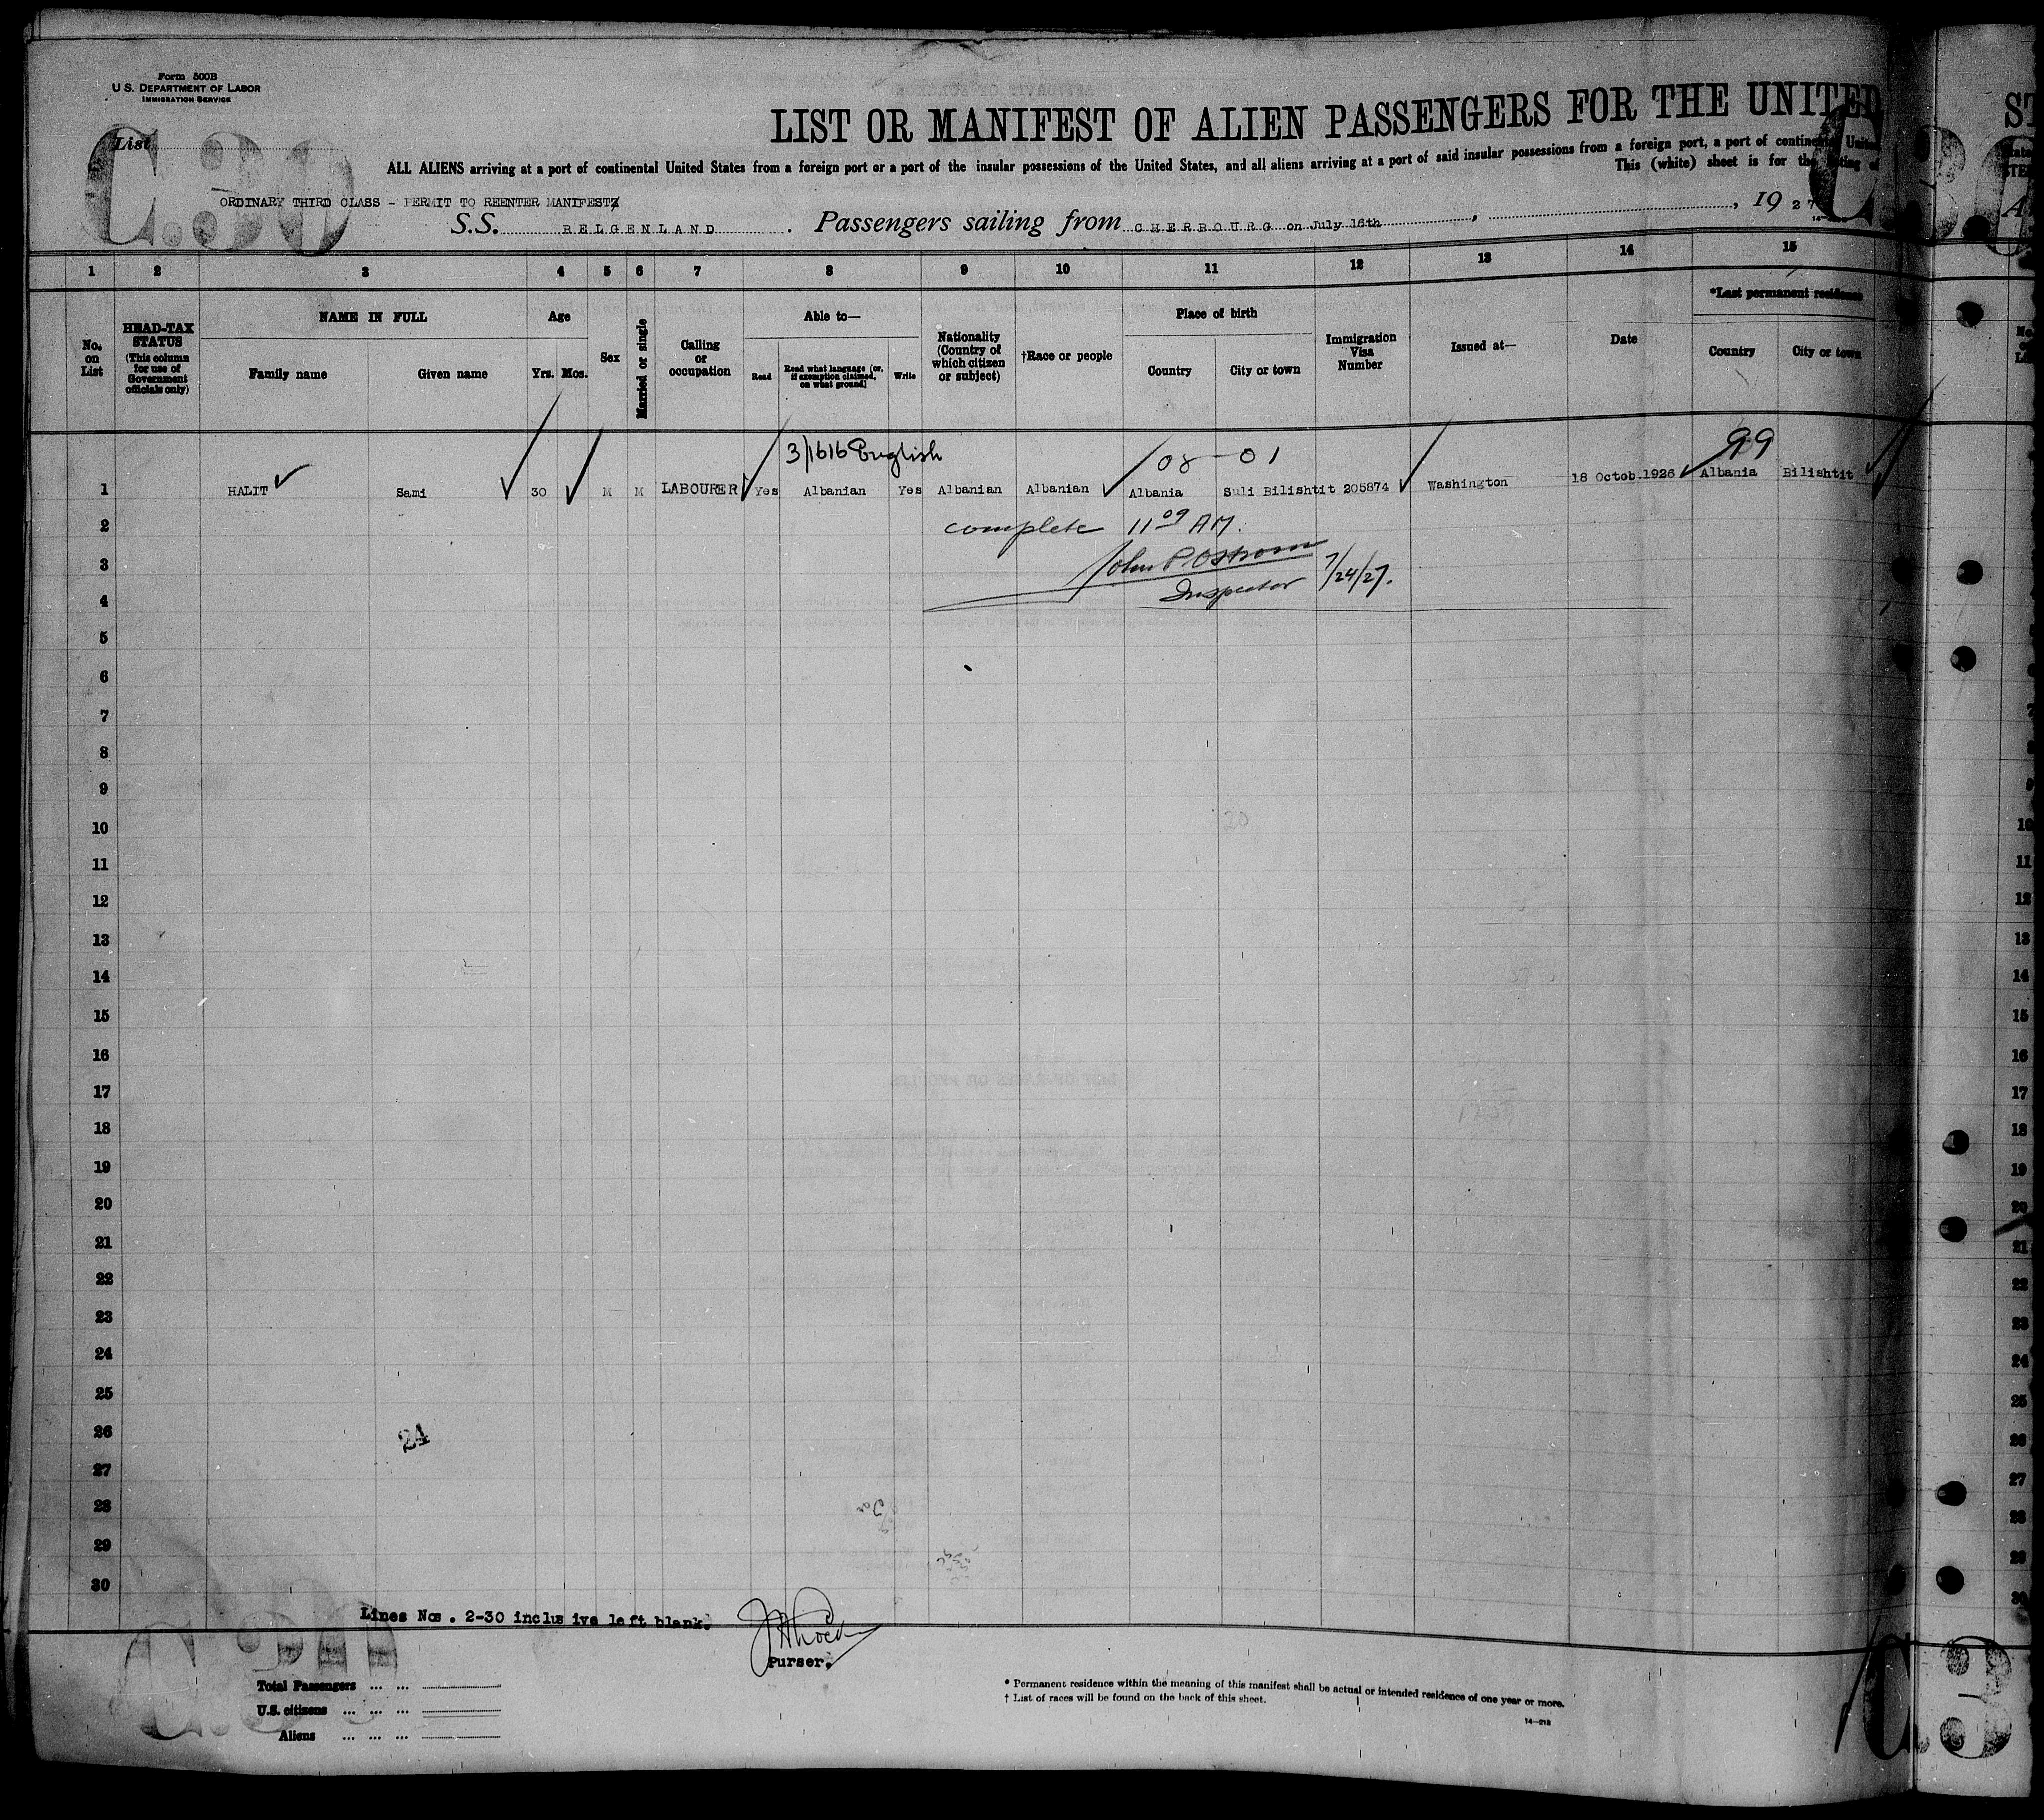 Form 500B
U.S. DEPARTMENT OF LABOR
IMMIGRATION SERVICE
C.30
List
LIST OR MANIFEST OF ALIEN PASSENGERS FOR THE UNITED
ST
ALL ALIENS arriving at a port of continental United States from a foreign port or a port of the insular possessions of the United States, and all aliens arriving at a port of said insular possessions from a foreign port, a port of continental United
This (white) sheet is for the listing of
ORDINARY THIRD CLASS - PERMIT TO REENTER MANIFEST
S.S. BELGENLAND. Passengers sailing from CHERBOURG on July 16th, , 1927
1 2 3 4 5 6 7 8 9 10 11 12 13 14 15
No. on List
HEAD-TAX STATUS (This column for use of Government officials only)
NAME IN FULL
Family name Given name
Age
Yrs. Mos.
Sex
Married or single
Calling or occupation
Able to—
Read Read what language (or, if exemption claimed, on what ground) Write
Nationality (Country of which citizen or subject)
†Race or people
Place of birth
Country City or town
Immigration Visa Number
Issued at—
Date
*Last permanent residence
Country City or town
3/1616 English 08 - 01 99
1 HALIT Sami 30 M M LABOURER Yes Albanian Yes Albanian Albanian Albania Suli Bilishtit 205874 Washington 18 Octob.1926 Albania Bilishtit
2 complete 11 09 AM.
3 John P Ostrom
4 Inspector 7/24/27.
5
6
7
8
9
10
11
12
13
14
15
16
17
18
19
20
21
22
23
24
25
26
24
27
28
29
30
Lines Nos. 2-30 inclusive left blank.
Purser.
Total Passengers ... ...
U.S. citizens ... ... ...
Aliens ... ... ...
* Permanent residence within the meaning of this manifest shall be actual or intended residence of one year or more.
† List of races will be found on the back of this sheet.
14—218